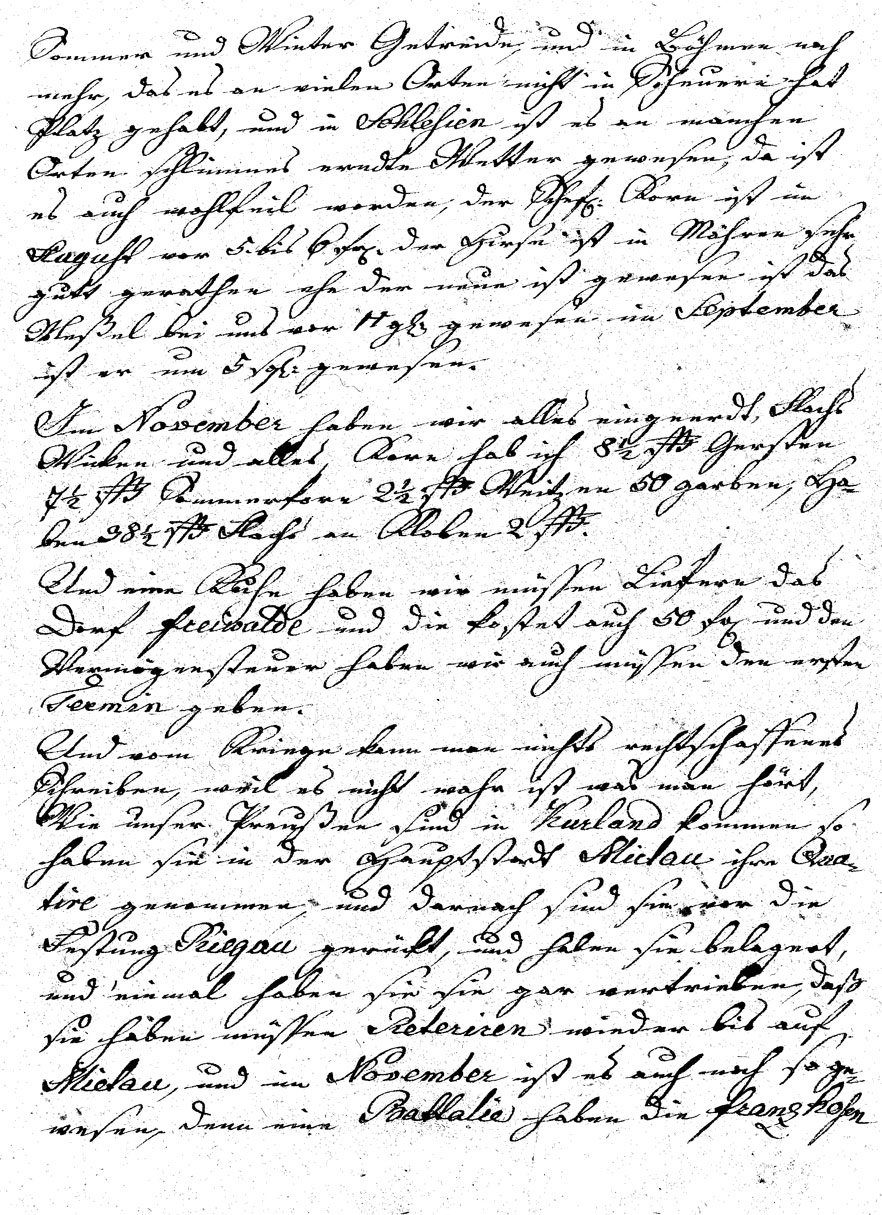 Sommer und Winter Getreide, und in Böhmen noch
mehr, das es an vielen Orten nicht in Scheuern hat
Platz gehabt, und in Schlesien ist es an manchen
Orten schlimmes erndte Wetter gewesen, da ist
es auch wohlfeil worden, der Schef: Korn ist im
August vor 5. bis 6 der Hirse ist in Mähren sehr
gutt gerathen ehe der neue ist gewesen ist das
Meßel bei uns vor 11 gewesen im September
ist er um 5 sgl: gewesen.
Im November haben wir alles eingeerdt, Flachs
Wicken und alles, Korn hab ich 8½ ßß Gersten
7½ ßß Sommerkorn 2½ ßß Weitzen 50 garben, Ha-
ben 38½ ßß Flachs an Kloben 2 ßß.
Und eine Kuhe haben wir müssen Liefern das
Dorf freiwalde und die kostet auch 50 und den
Vermögensteuer haben wir auch müssen den ersten
Termin geben.
Und vom Kriege kann man nichts rechtschaffenes
Schreiben, weil es nicht wahr ist was man hört,
Wie unser Preußen sind in Kurland kommen so
haben sie in der Hauptstadt Mietau ihre Qua-
tire genommen, und darnach sind sie vor die
Festung Riegau gerückt, und haben sie belagert,
und einmal haben sie sie gar vertrieben, daß
sie haben müssen Reteriren wieder bis auf
Mietau, und im November ist es auch noch so ge-
wesen, denn eine Battalie haben die franzhosen